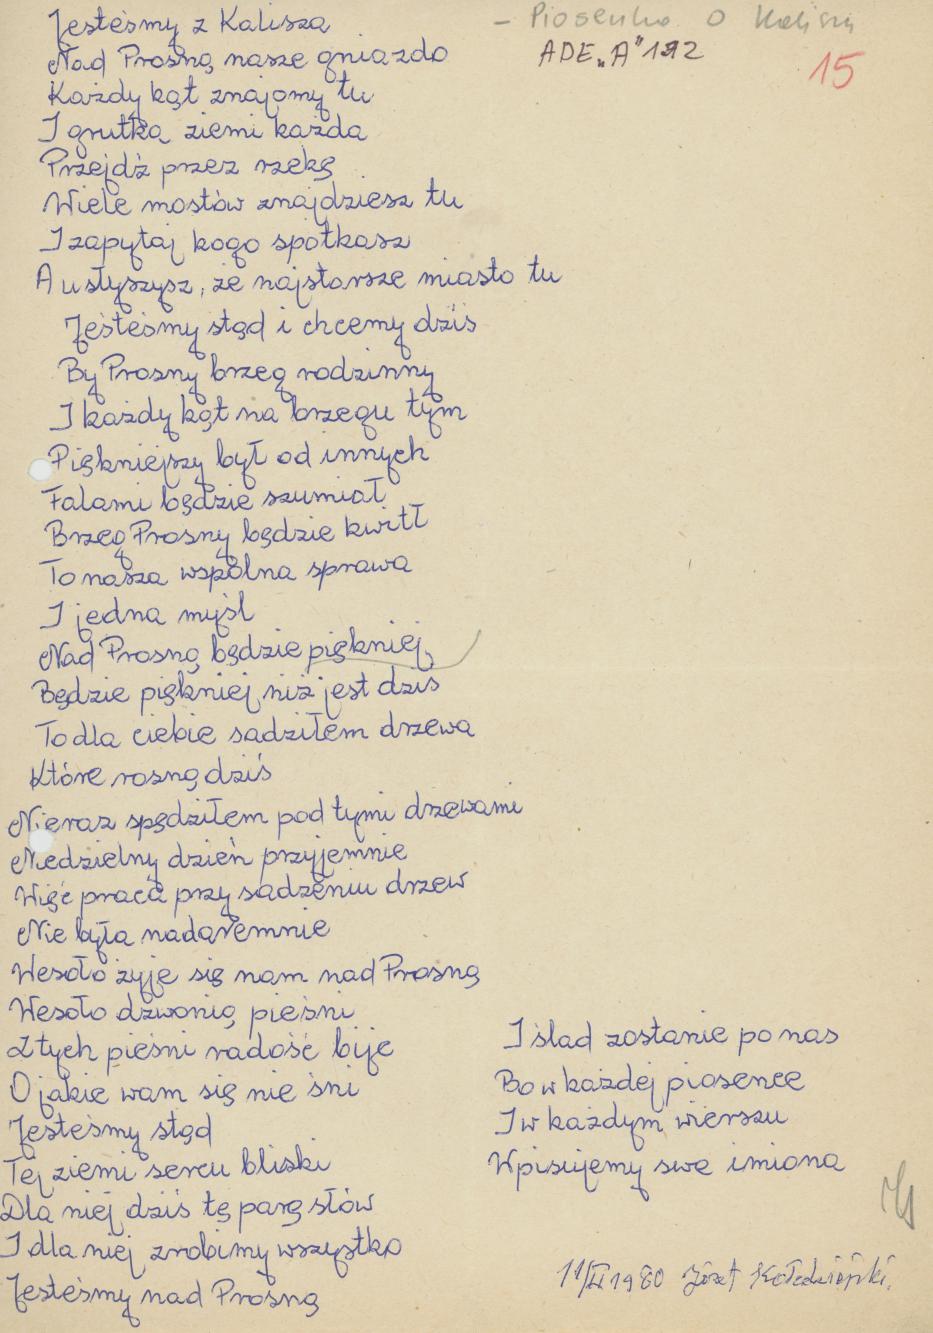 – Piosenka o Kaliszu
ADE „A" 192
15
Jesteśmy z Kalisza
Nad Prosną nasze gniazdo
Każdy kąt znajomy tu
I grutka ziemi każda
Przejdź przez rzekę
Wiele mostów znajdziesz tu
I zapytaj kogo spotkasz
A usłyszysz, że najstarsze miasto tu
Jesteśmy stąd i chcemy dziś
By Prosny brzeg rodzinny
I każdy kąt na brzegu tym
Piękniejszy był od innych
Falami będzie szumiał
Brzeg Prosny będzie kwitł
To nasza wspólna sprawa
I jedna myśl
Nad Prosną będzie piękniej,
Będzie piękniej niż jest dziś
To dla ciebie sadziłem drzewa
Które rosną dziś
Nieraz spędziłem pod tymi drzewami
Niedzielny dzień przyjemnie
Więc praca przy sadzeniu drzew
Nie była nadaremnie
Wesoło żyje się nam nad Prosną
Wesoło dzwonią pieśni
Z tych pieśni radość bije
O jakie wam się nie śni
Jesteśmy stąd
Tej ziemi sercu bliski
Dla niej dziś tę parę słów
I dla niej zrobimy wszystko
Jesteśmy nad Prosną
I ślad zostanie po nas
Bo w każdej piosence
I w każdym wierszu
Wpisujemy swe imiona
11/II 1980 Józef